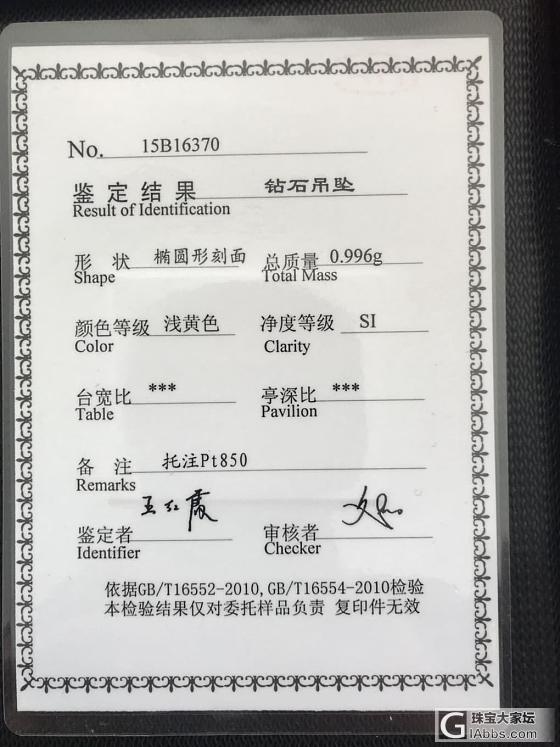 No. 15B16370
鉴定结果 钻石吊坠
Result of Identification
形状 椭圆形刻面 总质量 0.996g
Shape Total Mass
颜色等级 浅黄色 净度等级 SI
Color Clarity
台宽比 *** 亭深比 ***
Table Pavilion
备注 托注Pt850
Remarks
鉴定者 王红霞 审核者
Identifier Checker
依据GB/T16552-2010,GB/T16554-2010检验
本检验结果仅对委托样品负责 复印件无效
G 珠宝大家坛
GIAbbs.com